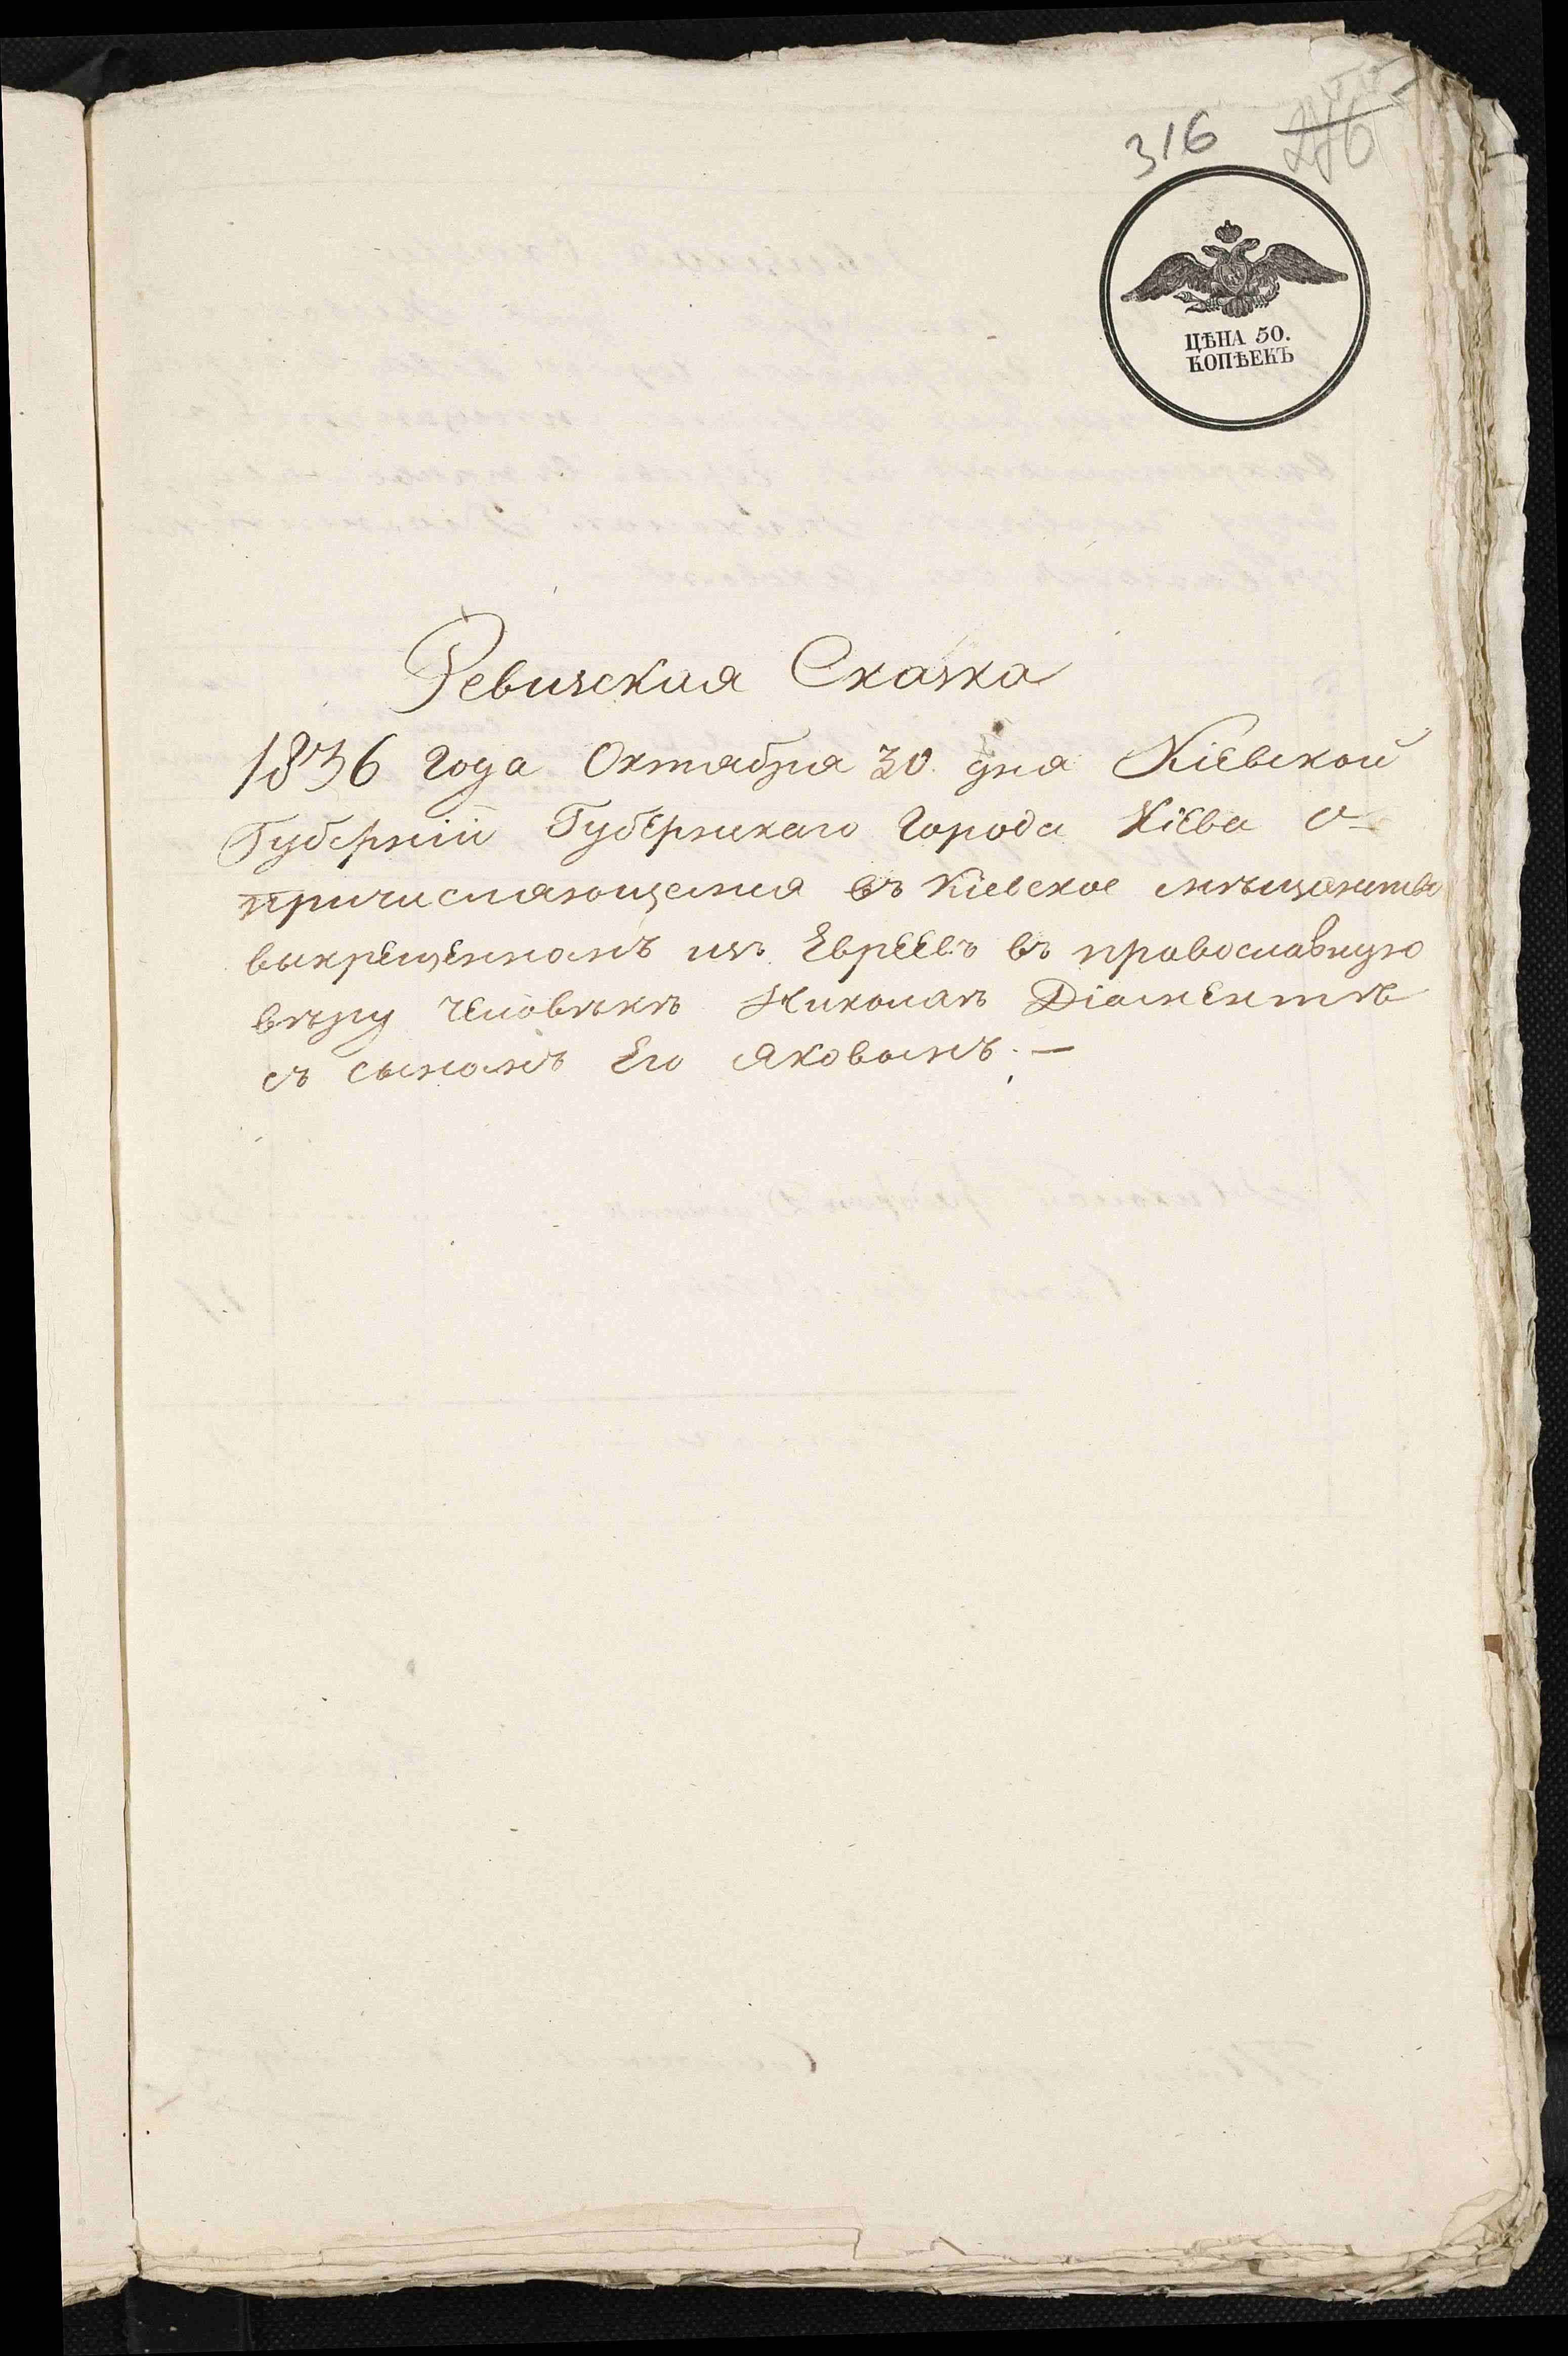 316
276
ЦѢНА 50.
КОПѢЕКЪ
Ревизская Сказка
1836 года Октября 30 дня Кіевской
Губерніи Губернскаго города Кіева о
причисляющемся въ Кіевское мѣщанство
выкрещенномъ изъ Евреевъ въ православную
вѣру человѣкѣ Николаѣ Діаментѣ
съ сыномъ Его Яковомъ. —